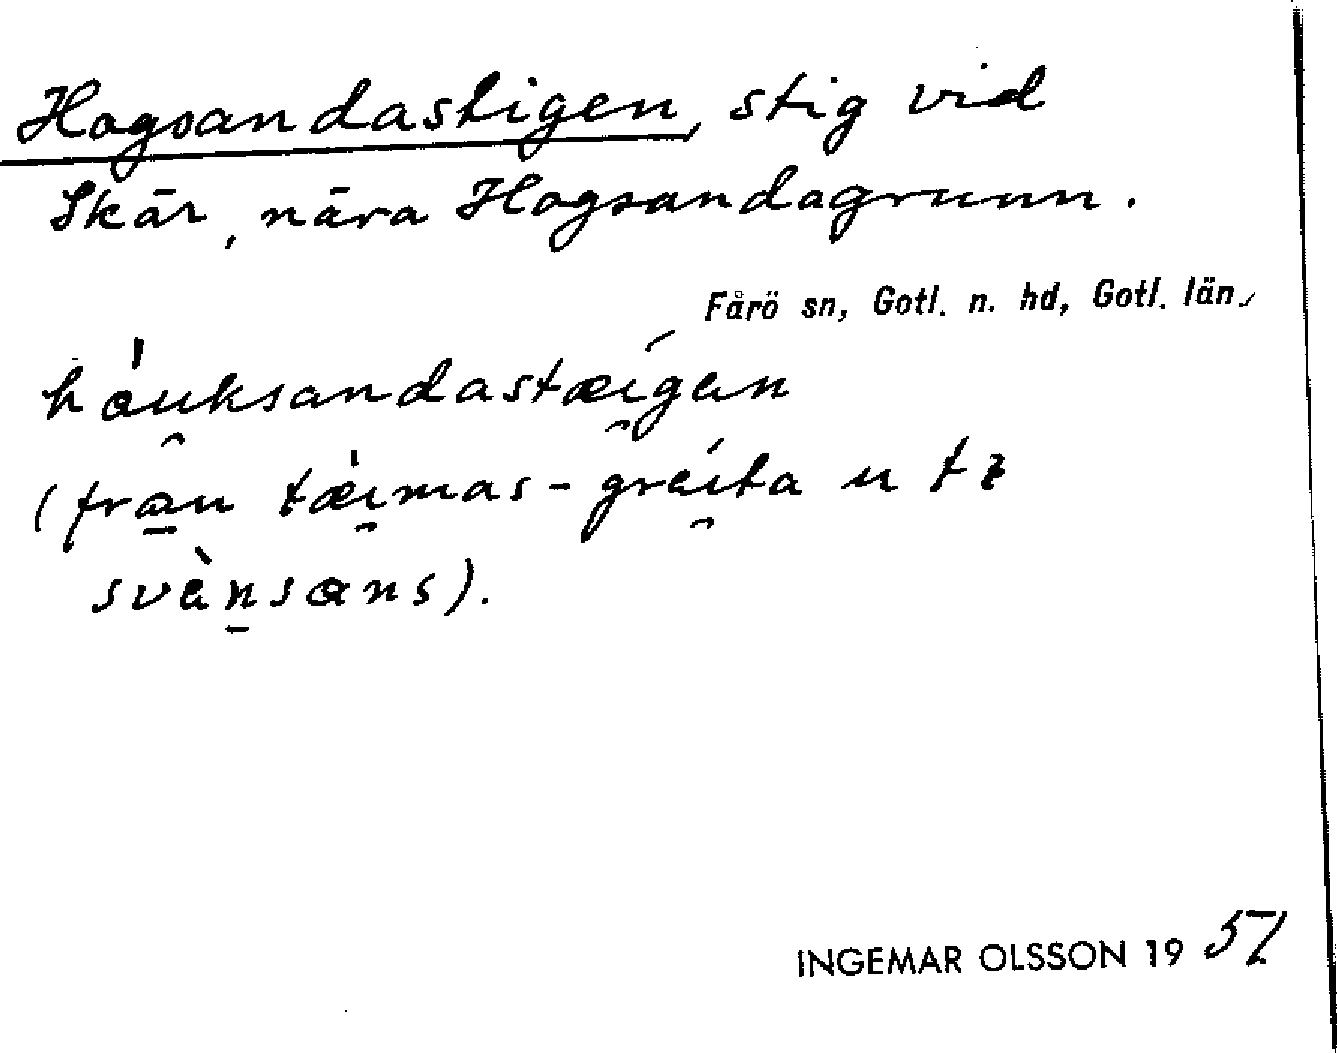 Hagsandastigen, stig vid
Skär, nära Hagsandagrunn.
Fårö sn, Gotl. n. hd, Gotl. län
háuksandastæígan
(fran tæimas-greita u tı
svènsans).
INGEMAR OLSSON 1957